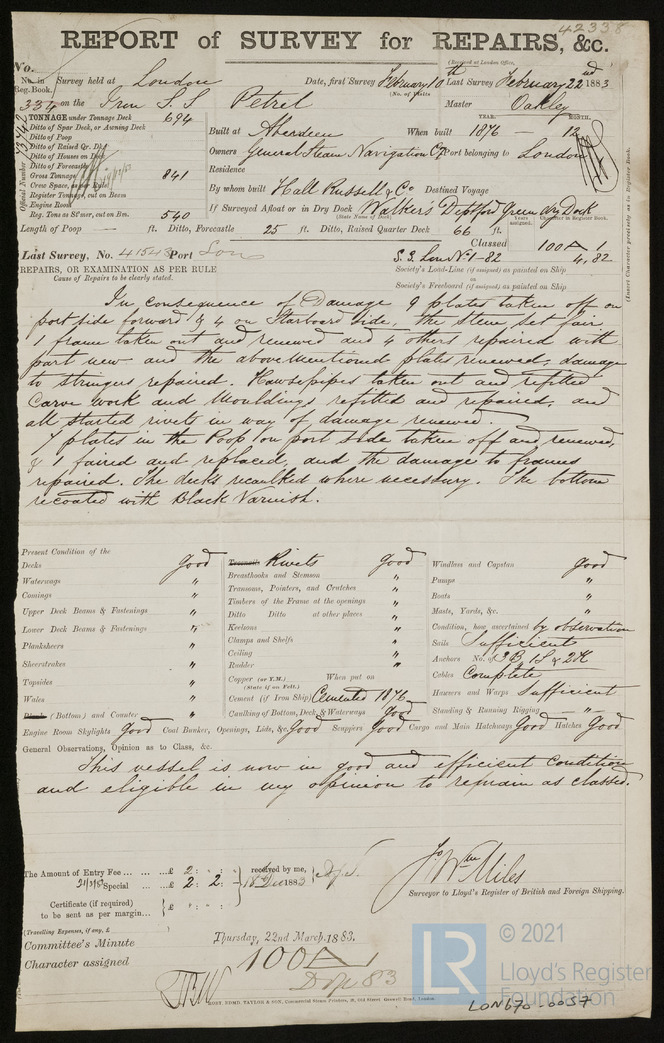 42338
REPORT of SURVEY for REPAIRS, &c.
(Received at London Office,
No.
No. in Reg. Book. Survey held at London Date, first Survey February 10th Last Survey February 22nd 1883
(No. of Visits
334 on the Iron S.S Petrel Master Oakley
TONNAGE under Tonnage Deck 694
Ditto of Spar Deck, or Awning Deck
Ditto of Poop
Ditto of Raised Qr. Dk.
Ditto of Houses on Deck
Ditto of Forecastle
Gross Tonnage 841
Crew Space, as per Rule
Register Tonnage, cut on Beam
Engine Room
Reg. Tons as St'mer, cut on Bm. 540
Official Number
YEAR. MONTH.
Built at Aberdeen When built 1876 — 12
Owners General Steam Navigation Co Port belonging to London
Residence
By whom built Hall Russell & Co Destined Voyage
If Surveyed Afloat or in Dry Dock Walker's Deptford Green dry Dock
(State Name of Dock)
Length of Poop — ft. Ditto, Forecastle 25 ft. Ditto, Raised Quarter Deck 66 ft.
Years assigned. Character in Register Book.
Classed 100 A 1
Last Survey, No. 41543 Port Lon S.S. Lon No. 1-82 4,82
(Insert Character precisely as in Register Book.
REPAIRS, OR EXAMINATION AS PER RULE
Cause of Repairs to be clearly stated.
Society's Load-Line (if assigned) as painted on Ship
Society's Freeboard (if assigned) as painted on Ship
In consequence of Damage 9 plates taken off on
port side forward & 4 on Starboard side, the stem set fair,
1 frame taken out and renewed and 4 others repaired with
part new and the abovementioned plates renewed; damage
to stringers repaired. Hawsepipes taken out and refitted
Carve work and mouldings refitted and repaired, and
all started rivets in way of damage renewed.
7 plates in the Poop on port side taken off and renewed,
& 1 faired and replaced and the damage to frames
repaired. The decks recaulked where necessary. The bottom
recoated with Black Varnish.
Present Condition of the
Decks good
Waterways "
Comings "
Upper Deck Beams & Fastenings "
Lower Deck Beams & Fastenings "
Planksheers "
Sheerstrakes "
Topsides "
Wales "
(Bottom) and Counter "
Treenails Rivets good
Breasthooks and Stemson "
Transoms, Pointers, and Crutches "
Timbers of the Frame at the openings "
Ditto Ditto at other places "
Keelsons "
Clamps and Shelfs "
Ceiling "
Rudder "
Copper (or Y.M.) When put on
(State if on Felt.)
Cement (if Iron Ship) Cemented 1876
Caulking of Bottom, Deck, & Waterways good
Windlass and Capstan good
Pumps "
Boats "
Masts, Yards, &c. "
Condition, how ascertained by observation
Sails Sufficient
Anchors No. of 3 B, 1 S & 2 K
Cables Complete
Hawsers and Warps Sufficient
Standing & Running Rigging — " —
Engine Room Skylights Good Coal Bunker, Openings, Lids, &c. Good Scuppers Good Cargo and Main Hatchways Good Hatches Good
General Observations, Opinion as to Class, &c.
This vessel is now in good and efficient condition
and eligible in my opinion to remain as classed.
The Amount of Entry Fee ... £ 2 : : received by me,
Special ... £ 2 : 2 : 1883
Certificate (if required) to be sent as per margin... £ : :
(Travelling Expenses, if any, £
Jo Wm Miles
Surveyor to Lloyd's Register of British and Foreign Shipping.
Committee's Minute Thursday, 22nd March, 1883.
Character assigned 100 A 1
83
© 2021
LR Lloyd's Register Foundation
LON670-0057